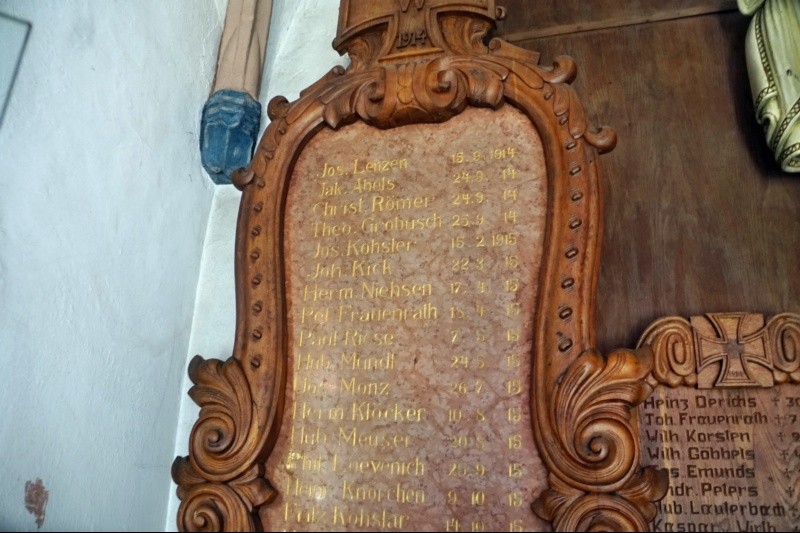 W
1914
Jos. Lenzen 15. 8. 1914
Jak. Abels 24. 14
Christ. Römer 24. 9. 14
Theo. Grobusch 25. 9. 14
Jos. Kohsler 15. 2. 1915
Joh. Kick 22. 3. 15
Herm. Niehsen 17. 4. 15
Pet. Frauenrath 18. 4. 15
Paul Riese 7. 15
Hub. Mandl 24. 15
Jos. Monz 26. 7. 15
Herm. Klöcker 10. 8. 15
Hub. Meuser 15
Loevenich 25. 9. 15
Knörchen 9. 10. 15
Fritz Kohslar 14. 10. 15
Heinz Derichs + 30
Joh. Frauenrath + 7
Wilh. Korsten + 9
Wilh. Göbbels +
Jos. Emunds +
Andr. Peters
Hub. Lauterbach +
Kaspar Wirth +